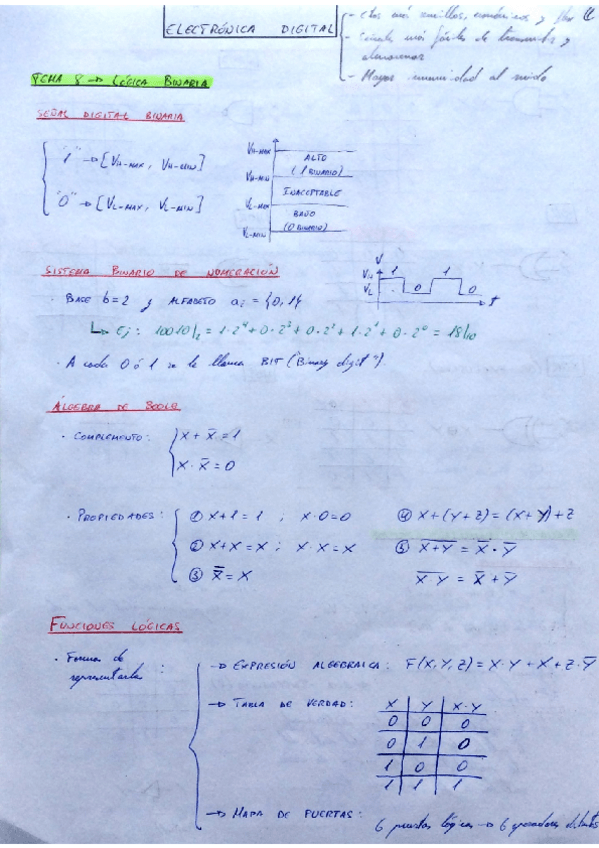 ELECTRÓNICA DIGITAL
- Ctos más sencillos, económicos y
- Señales más fáciles de transmitir y
almacenar
- Mayor inmunidad al ruido
TEMA 8 → LÓGICA BINARIA
SEÑAL DIGITAL BINARIA
"1" → [VH-MAX, VH-MIN]
"0" → [VL-MAX, VL-MIN]
VH-MAX
ALTO
(1 BINARIO)
VH-MIN
INACEPTABLE
VL-MAX
BAJO
(0 BINARIO)
VL-MIN
SISTEMA BINARIO DE NUMERACIÓN
V
VH 1 1
VL 0 0
t
· BASE b=2 y ALFABETO ai = {0,1}
↳ Ej: 10010/2 = 1·2⁴+0·2³+0·2²+1·2¹+0·2⁰ = 18/10
· A cada 0 ó 1 se le llama BIT ("Binary digit").
ÁLGEBRA DE BOOLE
· COMPLEMENTO: { X + X̅ = 1
X · X̅ = 0
· PROPIEDADES: { ① X+1=1 ; X·0=0 ④ X+(Y+Z)=(X+Y)+Z
② X+X=X ; X·X=X ⑤ X̅+̅Y̅ = X̅ · Y̅
③ X̿ = X X̅·̅Y̅ = X̅ + Y̅
FUNCIONES LÓGICAS
· Formas de
representarlas :
→ EXPRESIÓN ALGEBRAICA: F(X,Y,Z) = X·Y + X + Z·Y̅
→ TABLA DE VERDAD:
X Y X·Y
0 0 0
0 1 0
1 0 0
1 1 1
→ MAPA DE PUERTAS: 6 puertas lógicas → 6 operadores distintos